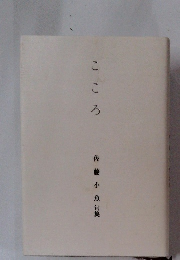 こころ
佐藤小魚句集